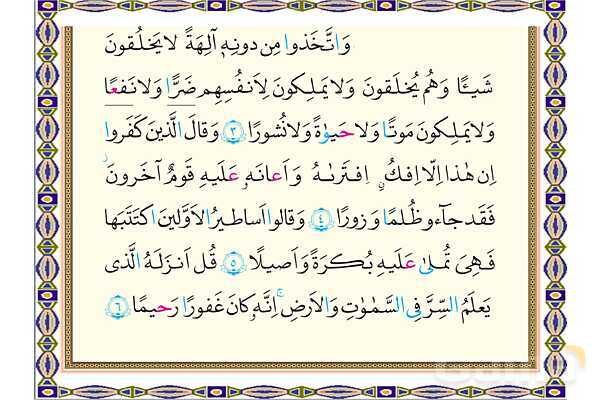 وَاتَّخَذوا مِن دونِهٖ آلِهَةً لا يَخلُقونَ
شَيئًا وَهُم يُخلَقونَ وَلا يَملِكونَ لِاَنفُسِهِم ضَرًّا وَلا نَفعًا
وَلا يَملِكونَ مَوتًا وَلا حَيوٰةً وَلا نُشورًا ﴿٣﴾ وَقالَ الَّذينَ كَفَروا
اِن هٰذا اِلّا اِفكٌ افتَرىٰهُ وَاَعانَهٗ عَلَيهِ قَومٌ آخَرونَ ۖ
فَقَد جاۤءو ظُلمًا وَزورًا ﴿٤﴾ وَقالوا اَساطيرُ الاَوَّلينَ اكتَتَبَها
فَهِىَ تُملىٰ عَلَيهِ بُكرَةً وَاَصيلًا ﴿٥﴾ قُل اَنزَلَهُ الَّذى
يَعلَمُ السِّرَّ فِى السَّمٰوٰتِ وَالاَرضِ ۚ اِنَّهٗ كانَ غَفورًا رَحيمًا ﴿٦﴾